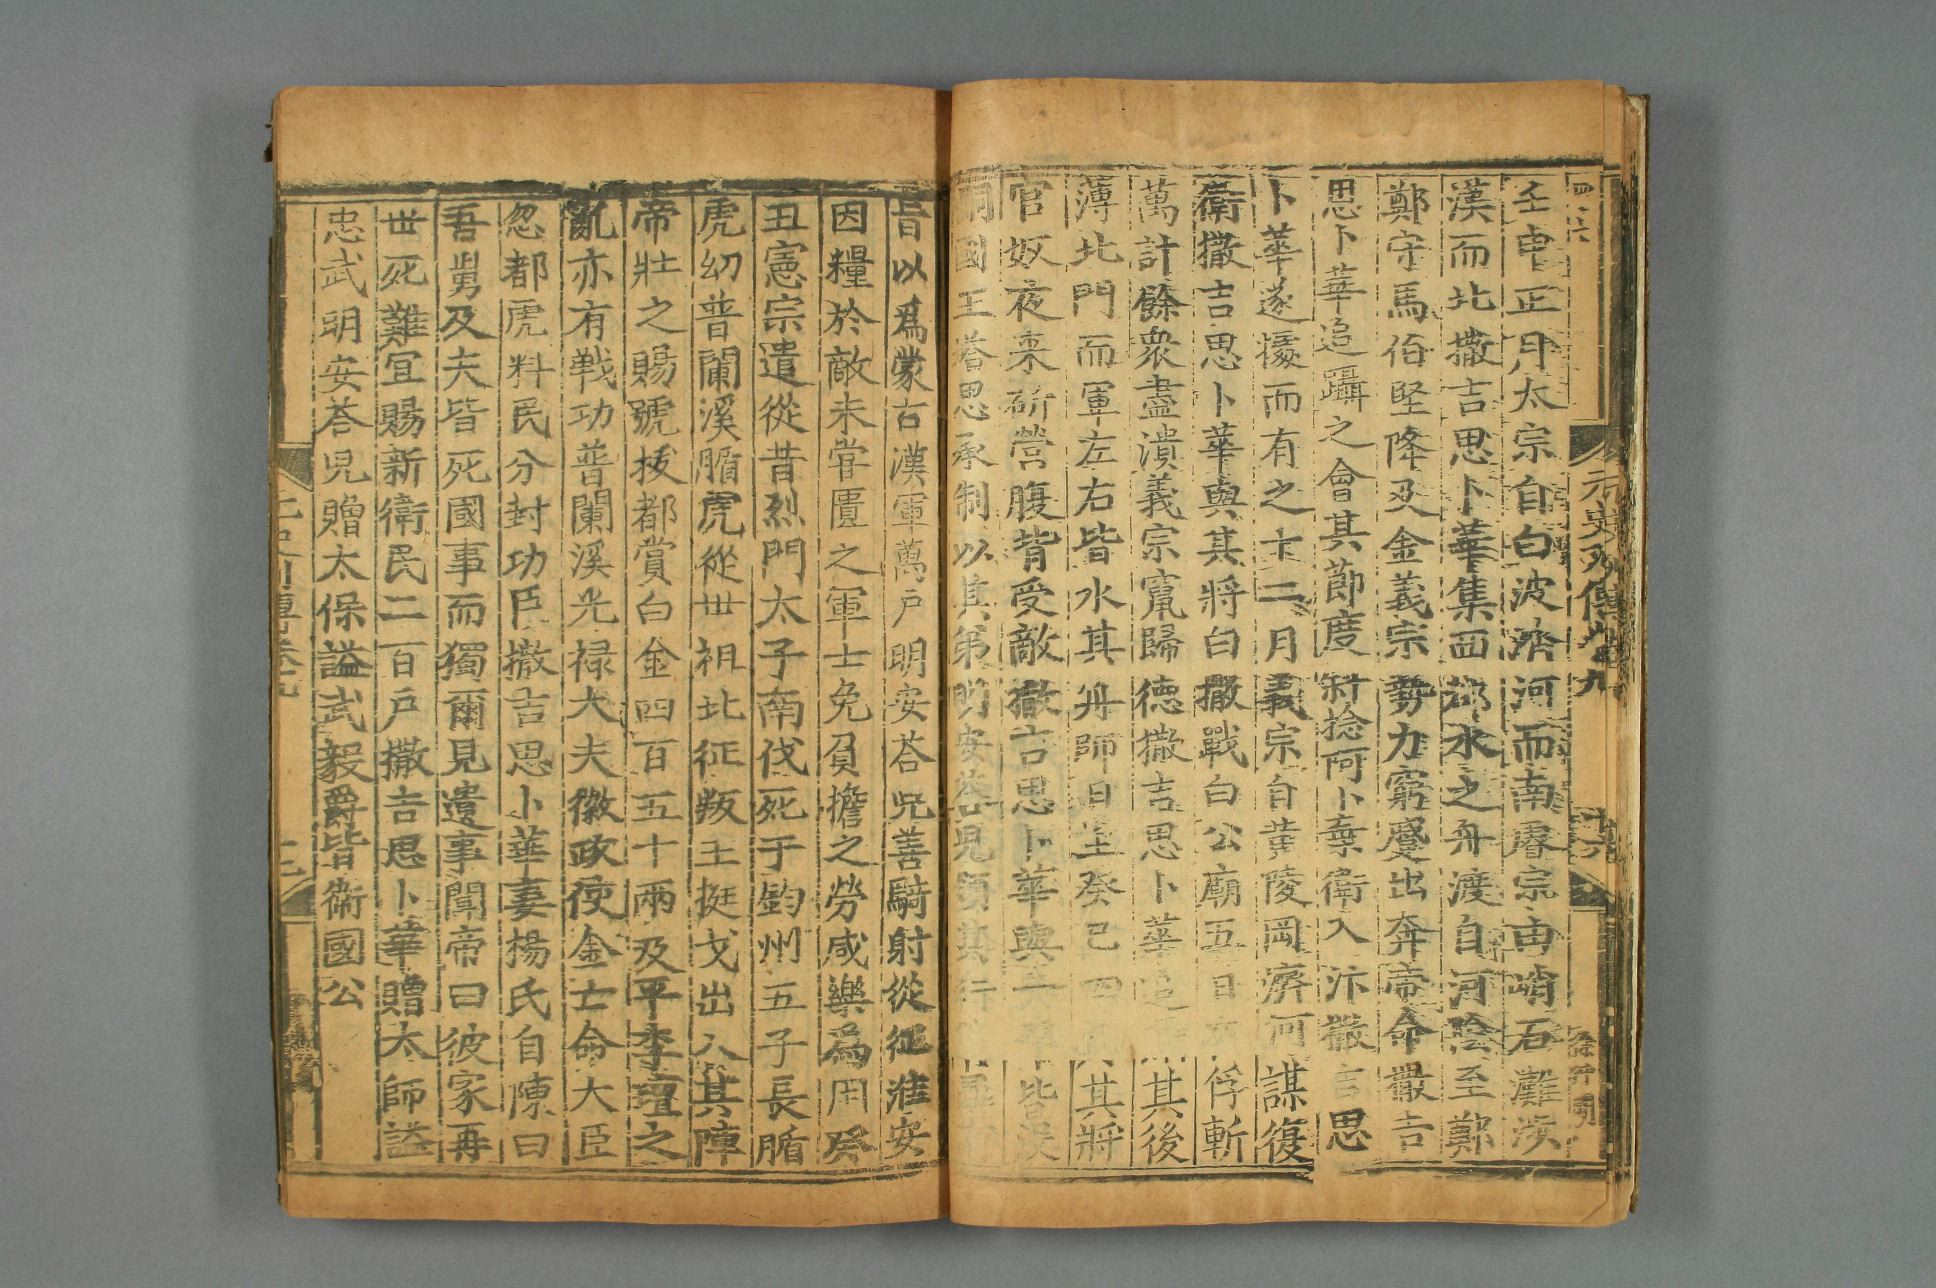 元史列傳卷九
十六
壬申正月太宗自白波濟河而南睿宗由峭石灘渡
漢而北撒吉思卜華集西都水之舟渡自河陰至鄭
鄭守馬伯堅降及金義宗勢力窮蹙出奔帝命撒吉
思卜華追躡之會其節度斜捻阿卜棄衛入汴撒吉思
卜華遂據而有之十二月義宗自黃陵岡濟河謀復
衛撒吉思卜華與其將白撒戰白公廟五日夜俘斬
萬計餘衆盡潰義宗竄歸德撒吉思卜華追其後
薄北門而軍左右皆水其舟師日至癸巳四月其將
官奴夜來斫營腹背受敵撒吉思卜華與軍皆沒
嗣國王塔思承制以其弟明安荅兒領其行
旨以爲蒙古漢軍萬戶明安荅兒善騎射從征淮安
因糧於敵未嘗匱之軍士免負擔之勞咸樂爲用癸
丑憲宗遣從昔烈門太子南伐死于鈞州五子長腯
虎幼普闌溪腯虎從世祖北征叛王挺戈出入其陣
帝壯之賜號拔都賞白金四百五十兩及平李璮之
亂亦有戰功普闌溪光祿大夫徽政使金士命大臣
忽都虎料民分封功臣撒吉思卜華妻楊氏自陳曰
吾舅及夫皆死國事而獨爾見遺事聞帝曰彼家再
世死難宜賜新衛民二百戶撒吉思卜華贈太師謚
忠武明安荅兒贈太保謚武毅爵皆衛國公